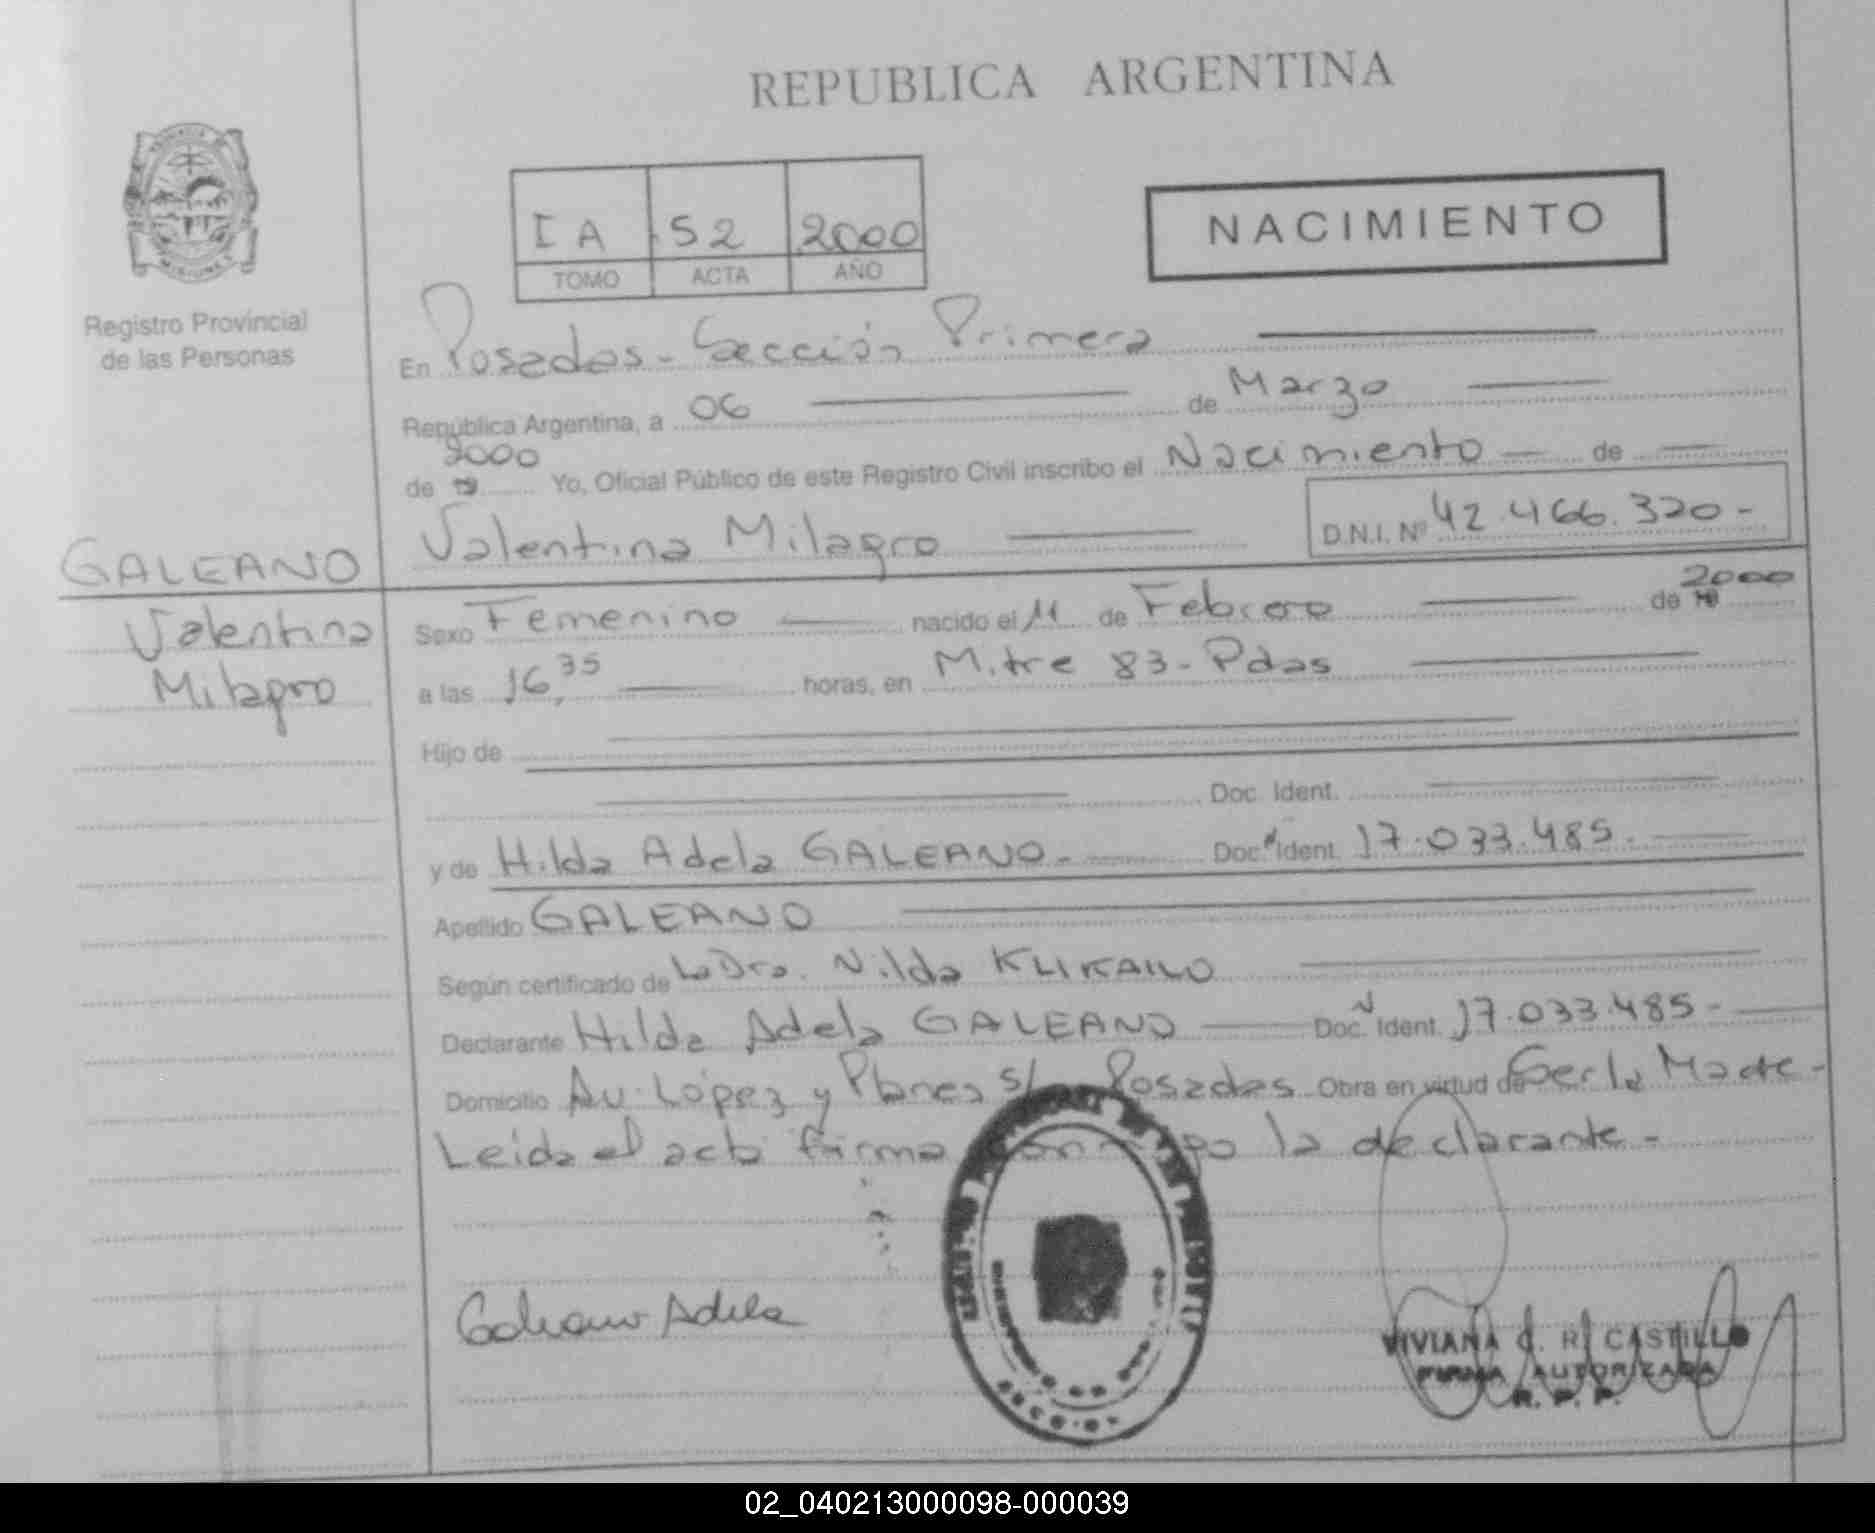 REPUBLICA ARGENTINA
PROVINCIA
MISIONES
Registro Provincial
de las Personas
IA 52 2000
TOMO ACTA AÑO
NACIMIENTO
En Posadas - Sección Primera
República Argentina, a 06 de Marzo
2000
de 19 Yo, Oficial Público de este Registro Civil inscribo el Nacimiento de
Valentina Milagro
D.N.I. Nº 42.466.320-
GALEANO
Valentina
Milagro
Sexo Femenino nacido el 11 de Febrero de 19 2000
a las 16,35 horas, en Mitre 83 - Pdas
Hijo de
Doc. Ident.
y de Hilda Adela GALEANO - Doc. Ident. 17.033.485.
Apellido GALEANO
Según certificado de La Dra. Nilda
Declarante Hilda Adela GALEANO Doc. N Ident. 17.033.485-
Domicilio Av. López y Planes s/n Posadas Obra en virtud de Ser la Madre -
Leída el acta firma conmigo la declarante -
Galeano Adela
VIVIANA C. R. CASTILLO
FIRMA AUTORIZADA
R. P. P.
02_040213000098-000039